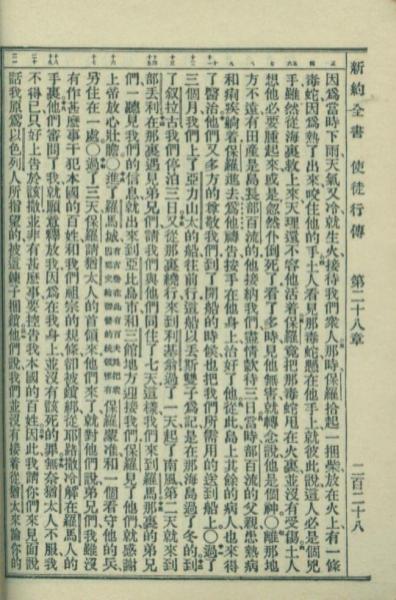 新約全書 使徒行傳 第二十八章 二百二十八
因爲當時下雨天氣又冷就生火接待我們衆人那時保羅拾起一捆柴放在火上有一條
毒蛇因爲熱了出來咬住他的手土人看見那毒蛇懸在他手上就彼此說這人必是個兇
手雖然從海裏救上來天理還不容他活着保羅竟把那毒蛇甩在火裏並沒有受傷土人
想他必要腫起來或是忽然仆倒死了看了多時見他無害就轉念說他是個神○離那地
方不遠有田產是島長部百流的他接納我們盡情款待三日當時部百流的父親患熱病
和痢疾躺着保羅進去爲他禱告按手在他身上治好了他從此島上其餘的病人也來得
了醫治他們又多方的尊敬我們到了開船的時候也把我們所需用的送到船上○過了
三個月我們上了亞力山太的船往前行這船以丟斯雙子爲記是在那海島過了冬的到
了敘拉古我們停泊三日又從那裏繞行來到利基翁過了一天起了南風第二天就來到
部丟利在那裏遇見弟兄們請我們與他們同住了七天這樣我們來到羅馬那裏的弟兄
們一聽見我們的信息就出來到亞比島市和三館地方迎接我們保羅見了他們就感謝
上帝放心壯膽○進了羅馬城有古卷在此有百夫長把衆囚犯交給御營的統領惟有保羅蒙准和一個看守他的兵
另住在一處○過了三天保羅請猶太人的首領來他們來了就對他們說弟兄們我雖沒
有作甚麽事干犯本國的百姓和我們祖宗的規條卻被鎖綁從耶路撒冷解在羅馬人的
手裏他們審問了我就願意釋放我因爲在我身上並沒有該死的罪無奈猶太人不服我
不得已只好上告於該撒並非有甚麽事要控告我本國的百姓因此我請你們來見面說
話我原爲以色列人所指望的被這鍊子捆鎖他們說我們並沒有接着從猶太來論你的